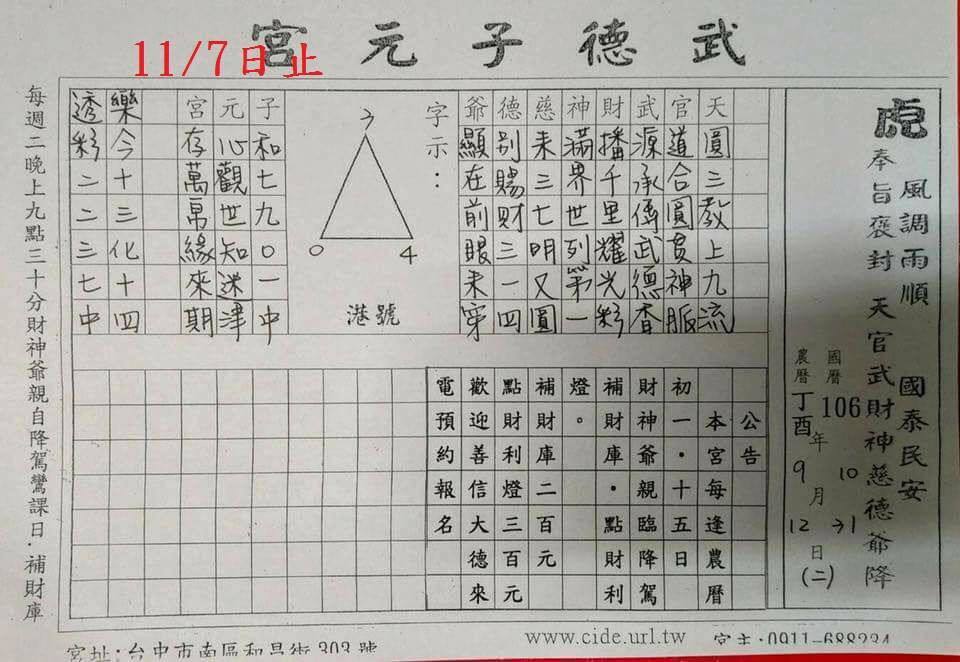 武德子元宮
11/7日止
虎
風調雨順 國泰民安
奉旨褒封 天官武財神慈德爺降
國曆 106年10月31日(二)
農曆 丁酉年9月12日
天圓三教上九流
官道合圓貫神脈
武源承傳武德香
財播千里耀光彩
神滿界世列第一
慈耒三七明又圓
德別賜財三一四
爺顯在前眼耒穿
字示：
7
0
4
港號
子和七九0一中
元心觀世知迷津
宮存萬帛緣來期
樂今十三化十四
透彩二二三七中
公告
本宮每逢農曆
初一．十五日
財神爺親臨降駕
補財庫．點財利
燈。
補財庫二百元
點財利燈三百元
歡迎善信大德來
電預約報名
每週二晚上九點三十分財神爺親自降駕鸞課日．補財庫
宮址:台中市南區和昌街303號
www.cide.url.tw
宮主:0911-688234